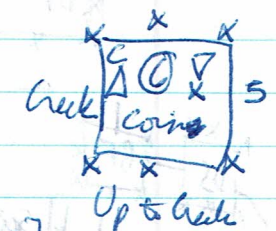 x
x x
C
C
x
Creek 5
Coins
x x x
Up to Creek